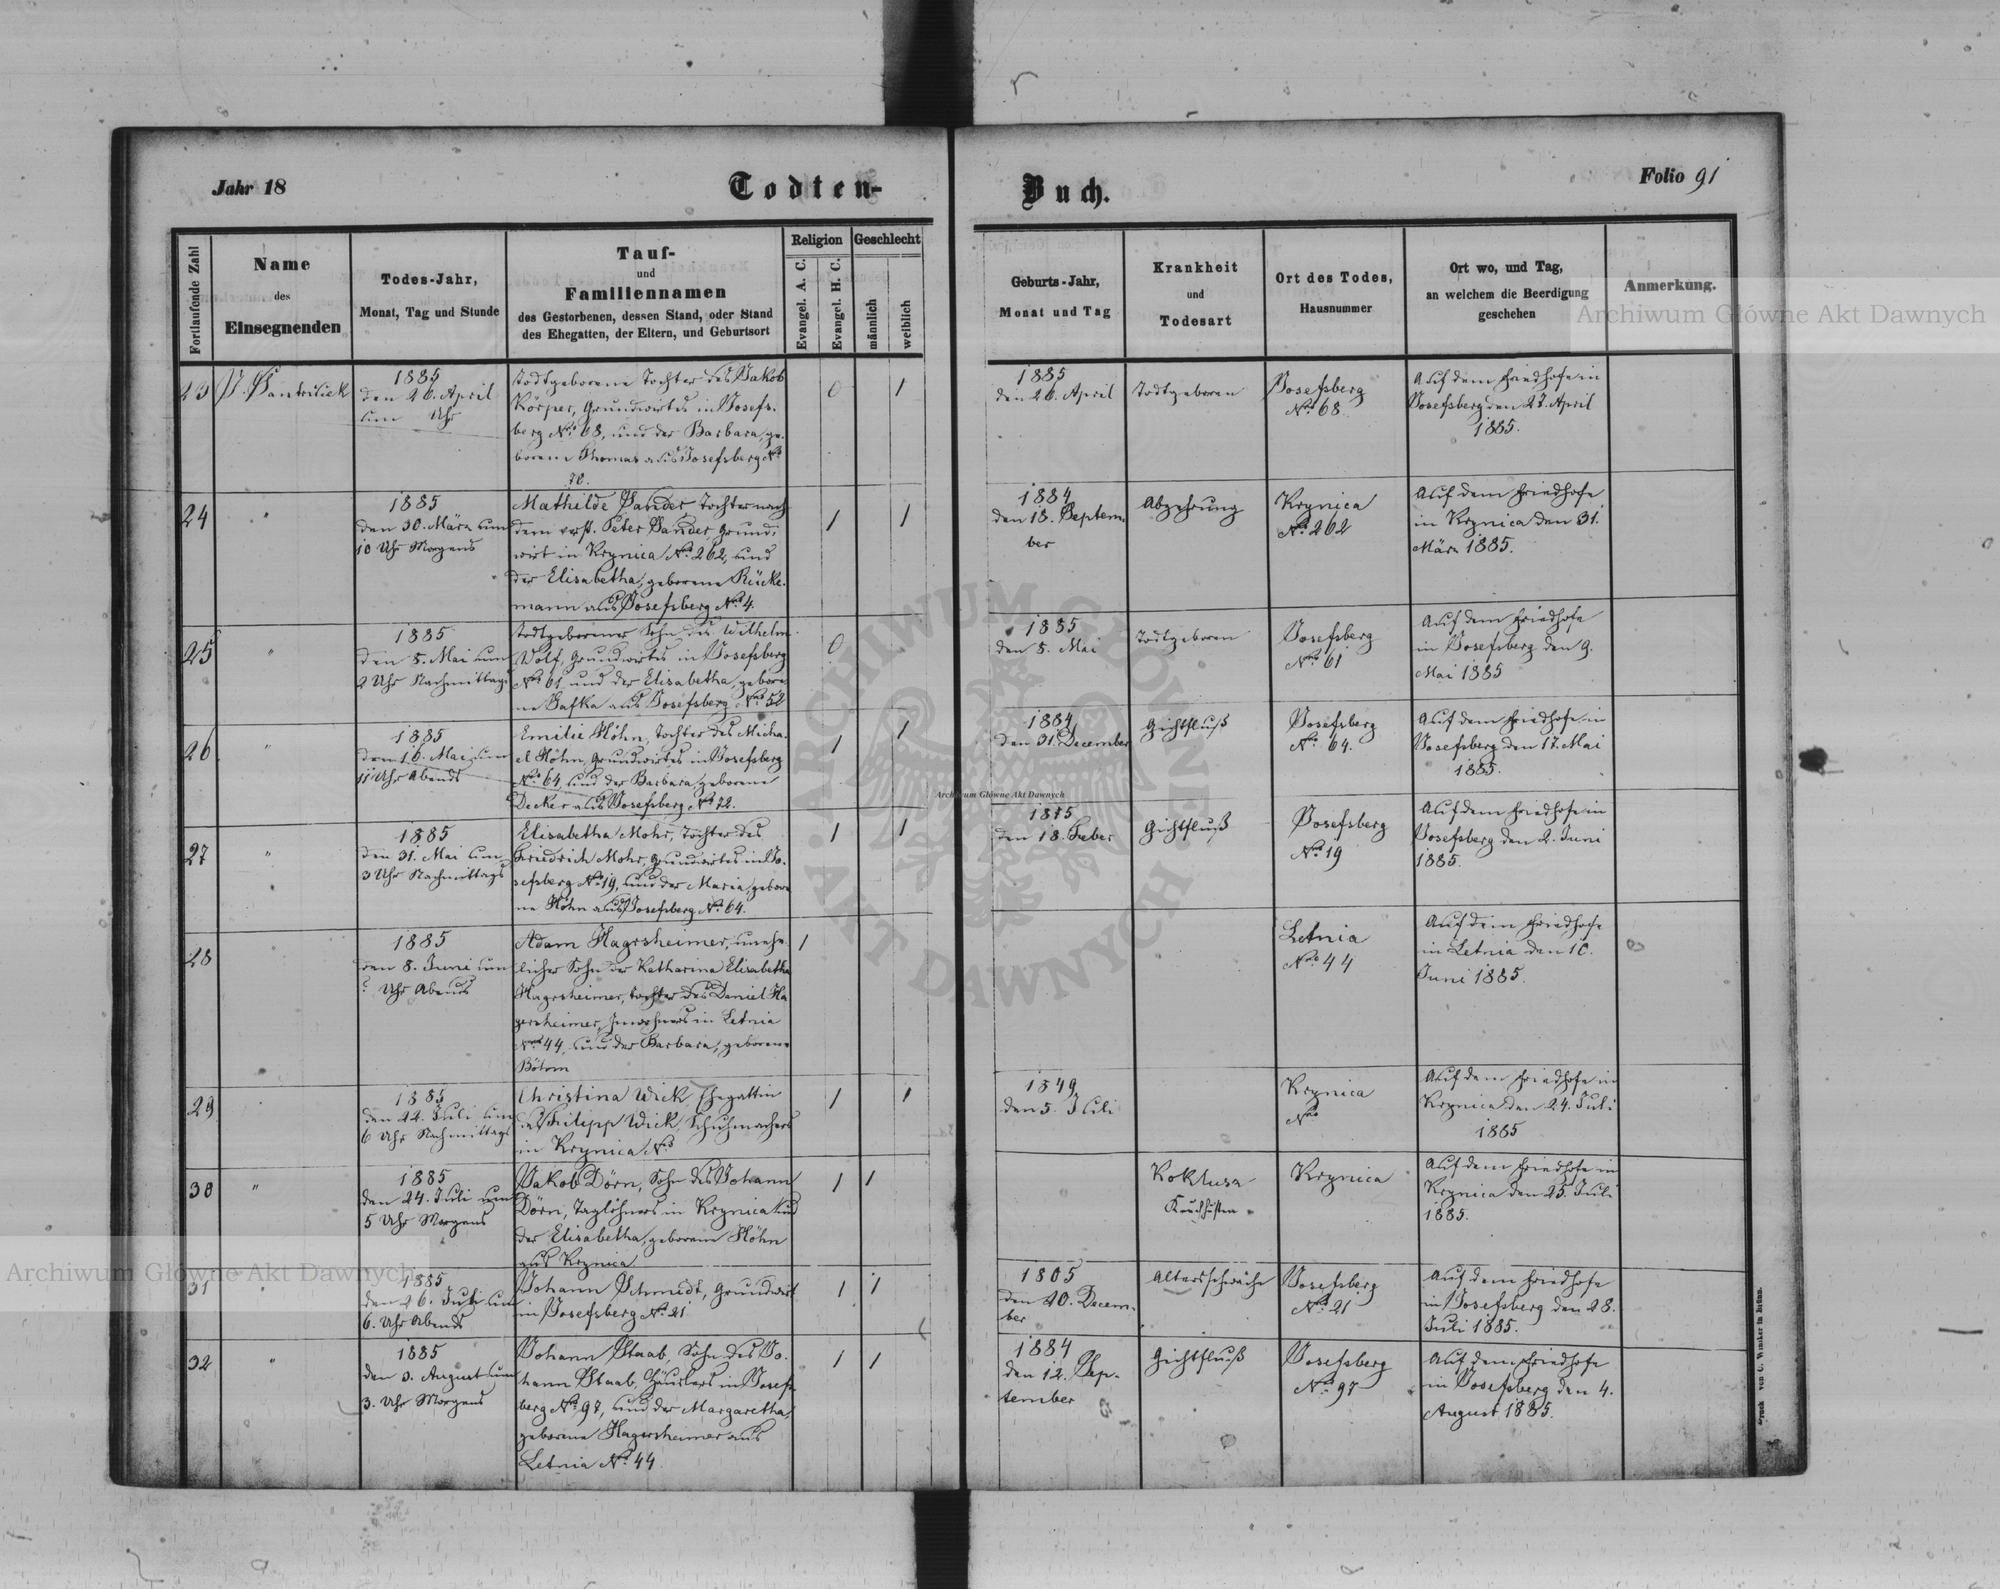 Jahr 18
Todten-
Buch.
Folio 91
Fortlaufende Zahl
Name
des
Einsegnenden
Todes-Jahr,
Monat, Tag und Stunde
Tauf-
und
Familiennamen
des Gestorbenen, dessen Stand, oder Stand
des Ehegatten, der Eltern, und Geburtsort
Religion
Evangel. A. C.
Evangel. H. C.
Geschlecht
männlich
weiblich
Geburts-Jahr,
Monat und Tag
Krankheit
und
Todesart
Ort des Todes,
Hausnummer
Ort wo, und Tag,
an welchem die Beerdigung
geschehen
Anmerkung.
23
1885
den 26. April
um Uhr
Todtgeborene Tochter des Jakob
Körper, Grundwirtes in Josefs-
berg No. 68, und der Barbara, ge-
borene Thomas aus Josefsberg No.
70.
0
1
1885
den 26. April
Todtgeboren
Josefsberg
No. 68.
Auf dem Friedhofe in
Josefsberg den 27. April
1885.
24
"
1885
den 30. März um
10 Uhr Morgens
Mathilde Sander Tochter nach
dem verst. Peter Sander, Grund-
wirt in Krynica No. 262, und
der Elisabetha, geborene Rücke-
mann aus Josefsberg No. 4.
1
1
1884
den 18. Septem-
ber
Abzehrung
Krynica
No. 262
Auf dem Friedhofe
in Krynica den 31.
März 1885.
25
"
1885
den 8. Mai um
2 Uhr Nachmittags
Todtgeborener Sohn des Wilhelm
Wolf, Grundwirtes in Josefsberg
No. 61 und der Elisabetha, gebore-
ne Gafka aus Josefsberg No. 52
0
1885
den 8. Mai
Todtgeboren
Josefsberg
No. 61
Auf dem Friedhofe
in Josefsberg den 9.
Mai 1885
26
"
1885
den 16. Mai um
11 Uhr Abends
Emilie Höhn, Tochter des Micha-
el Höhn, Grundwirtes in Josefsberg
No. 64, und der Barbara, geborene
Decker aus Josefsberg No. 72.
1
1
1884
den 31. December
Gichtfluß
Josefsberg
No. 64.
Auf dem Friedhofe in
Josefsberg den 17. Mai
1885.
27
"
1885
den 31. Mai um
3 Uhr Nachmittags
Elisabetha Mohr, Tochter des
Friedrich Mohr, Grundwirtes in Jo-
sefsberg No. 19, und der Maria, gebore-
ne Höhn aus Josefsberg No. 64.
1
1
den 18. Feber
Gichtfluß
Josefsberg
No. 19
Auf dem Friedhofe in
Josefsberg den 2. Juni
1885.
28
1885
den 8. Juni um
? Uhr Abends
Adam Hagersheimer, unehe-
licher Sohn der Katharina Elisabetha
Hagersheimer, Tochter des Daniel Ha-
gersheimer, Inwohners in Letnia
No. 44, und der Barbara, geborene
1
Letnia
No. 44
Auf dem Friedhofe
in Letnia den 10.
Juni 1885.
29
1885
den 22. Juli um
6 Uhr Nachmittags
Christina Wick, Ehegattin
des Filipp Wick, Schuhmachers
in Krynica No.
1
1
1849
den 5. Juli
Krynica
No.
Auf dem Friedhofe in
Krynica den 24. Juli
1885
30
"
1885
den 24. Juli um
5 Uhr Morgens
Jakob Dörn, Sohn des Johann
Dörn, Taglöhners in Krynica und
der Elisabetha, geborene Höhn
aus Krynica
1
1
Keuchhusten
Krynica
Auf dem Friedhofe in
Krynica den 25. Juli
1885.
31
"
1885
den 26. Juli um
6. Uhr Abends
Johann Schmidt, Grundwirt
in Josefsberg No. 21
1
1
1805
den 20. Decem-
ber
Altersschwäche
Josefsberg
No. 21
Auf dem Friedhofe
in Josefsberg den 28.
Juli 1885.
32
"
1885
den 3. August um
3. Uhr Morgens
Johann Staab, Sohn des Jo-
hann Staab, Häuslers in Josefs-
berg No. 97, und der Margaretha,
geborene Hagersheimer aus
Letnia No. 44
1
1
1884
den 12. Sep-
tember
Gichtfluß
Josefsberg
No. 97
Auf dem Friedhofe
in Josefsberg den 4.
August 1885.
Druck von C. Winiker in Brünn.
Archiwum Główne Akt Dawnych
Archiwum Główne Akt Dawnych
Archiwum Główne Akt Dawnych
ARCHIWUM GŁÓWNE
AKT DAWNYCH